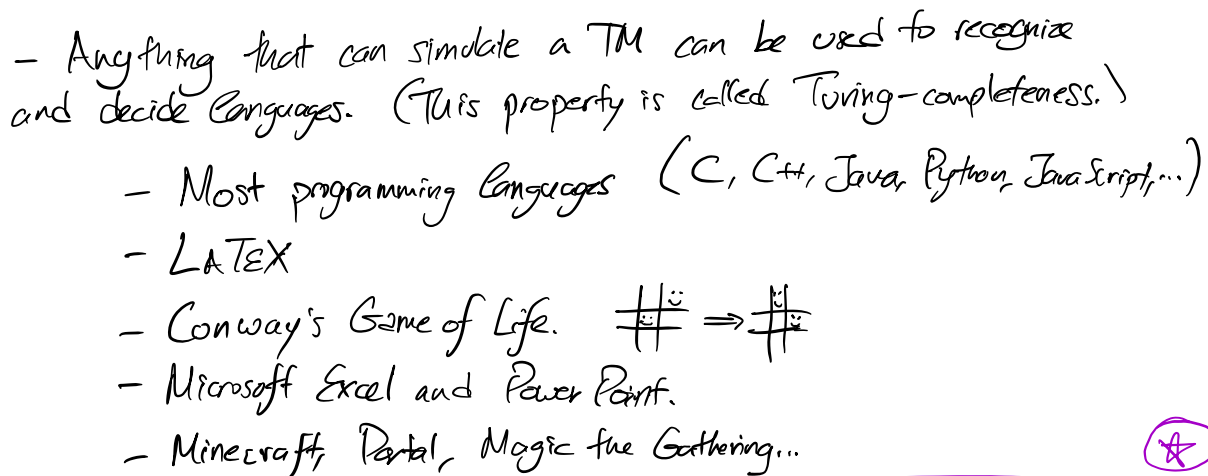 - Anything that can simulate a TM can be used to recognize
and decide languages. (This property is called Turing-completeness.)
- Most programming languages (C, C++, Java, Python, JavaScript,...)
- LATEX
- Conway's Game of Life. ⇒
- Microsoft Excel and Power Point.
- Minecraft, Portal, Magic the Gathering...